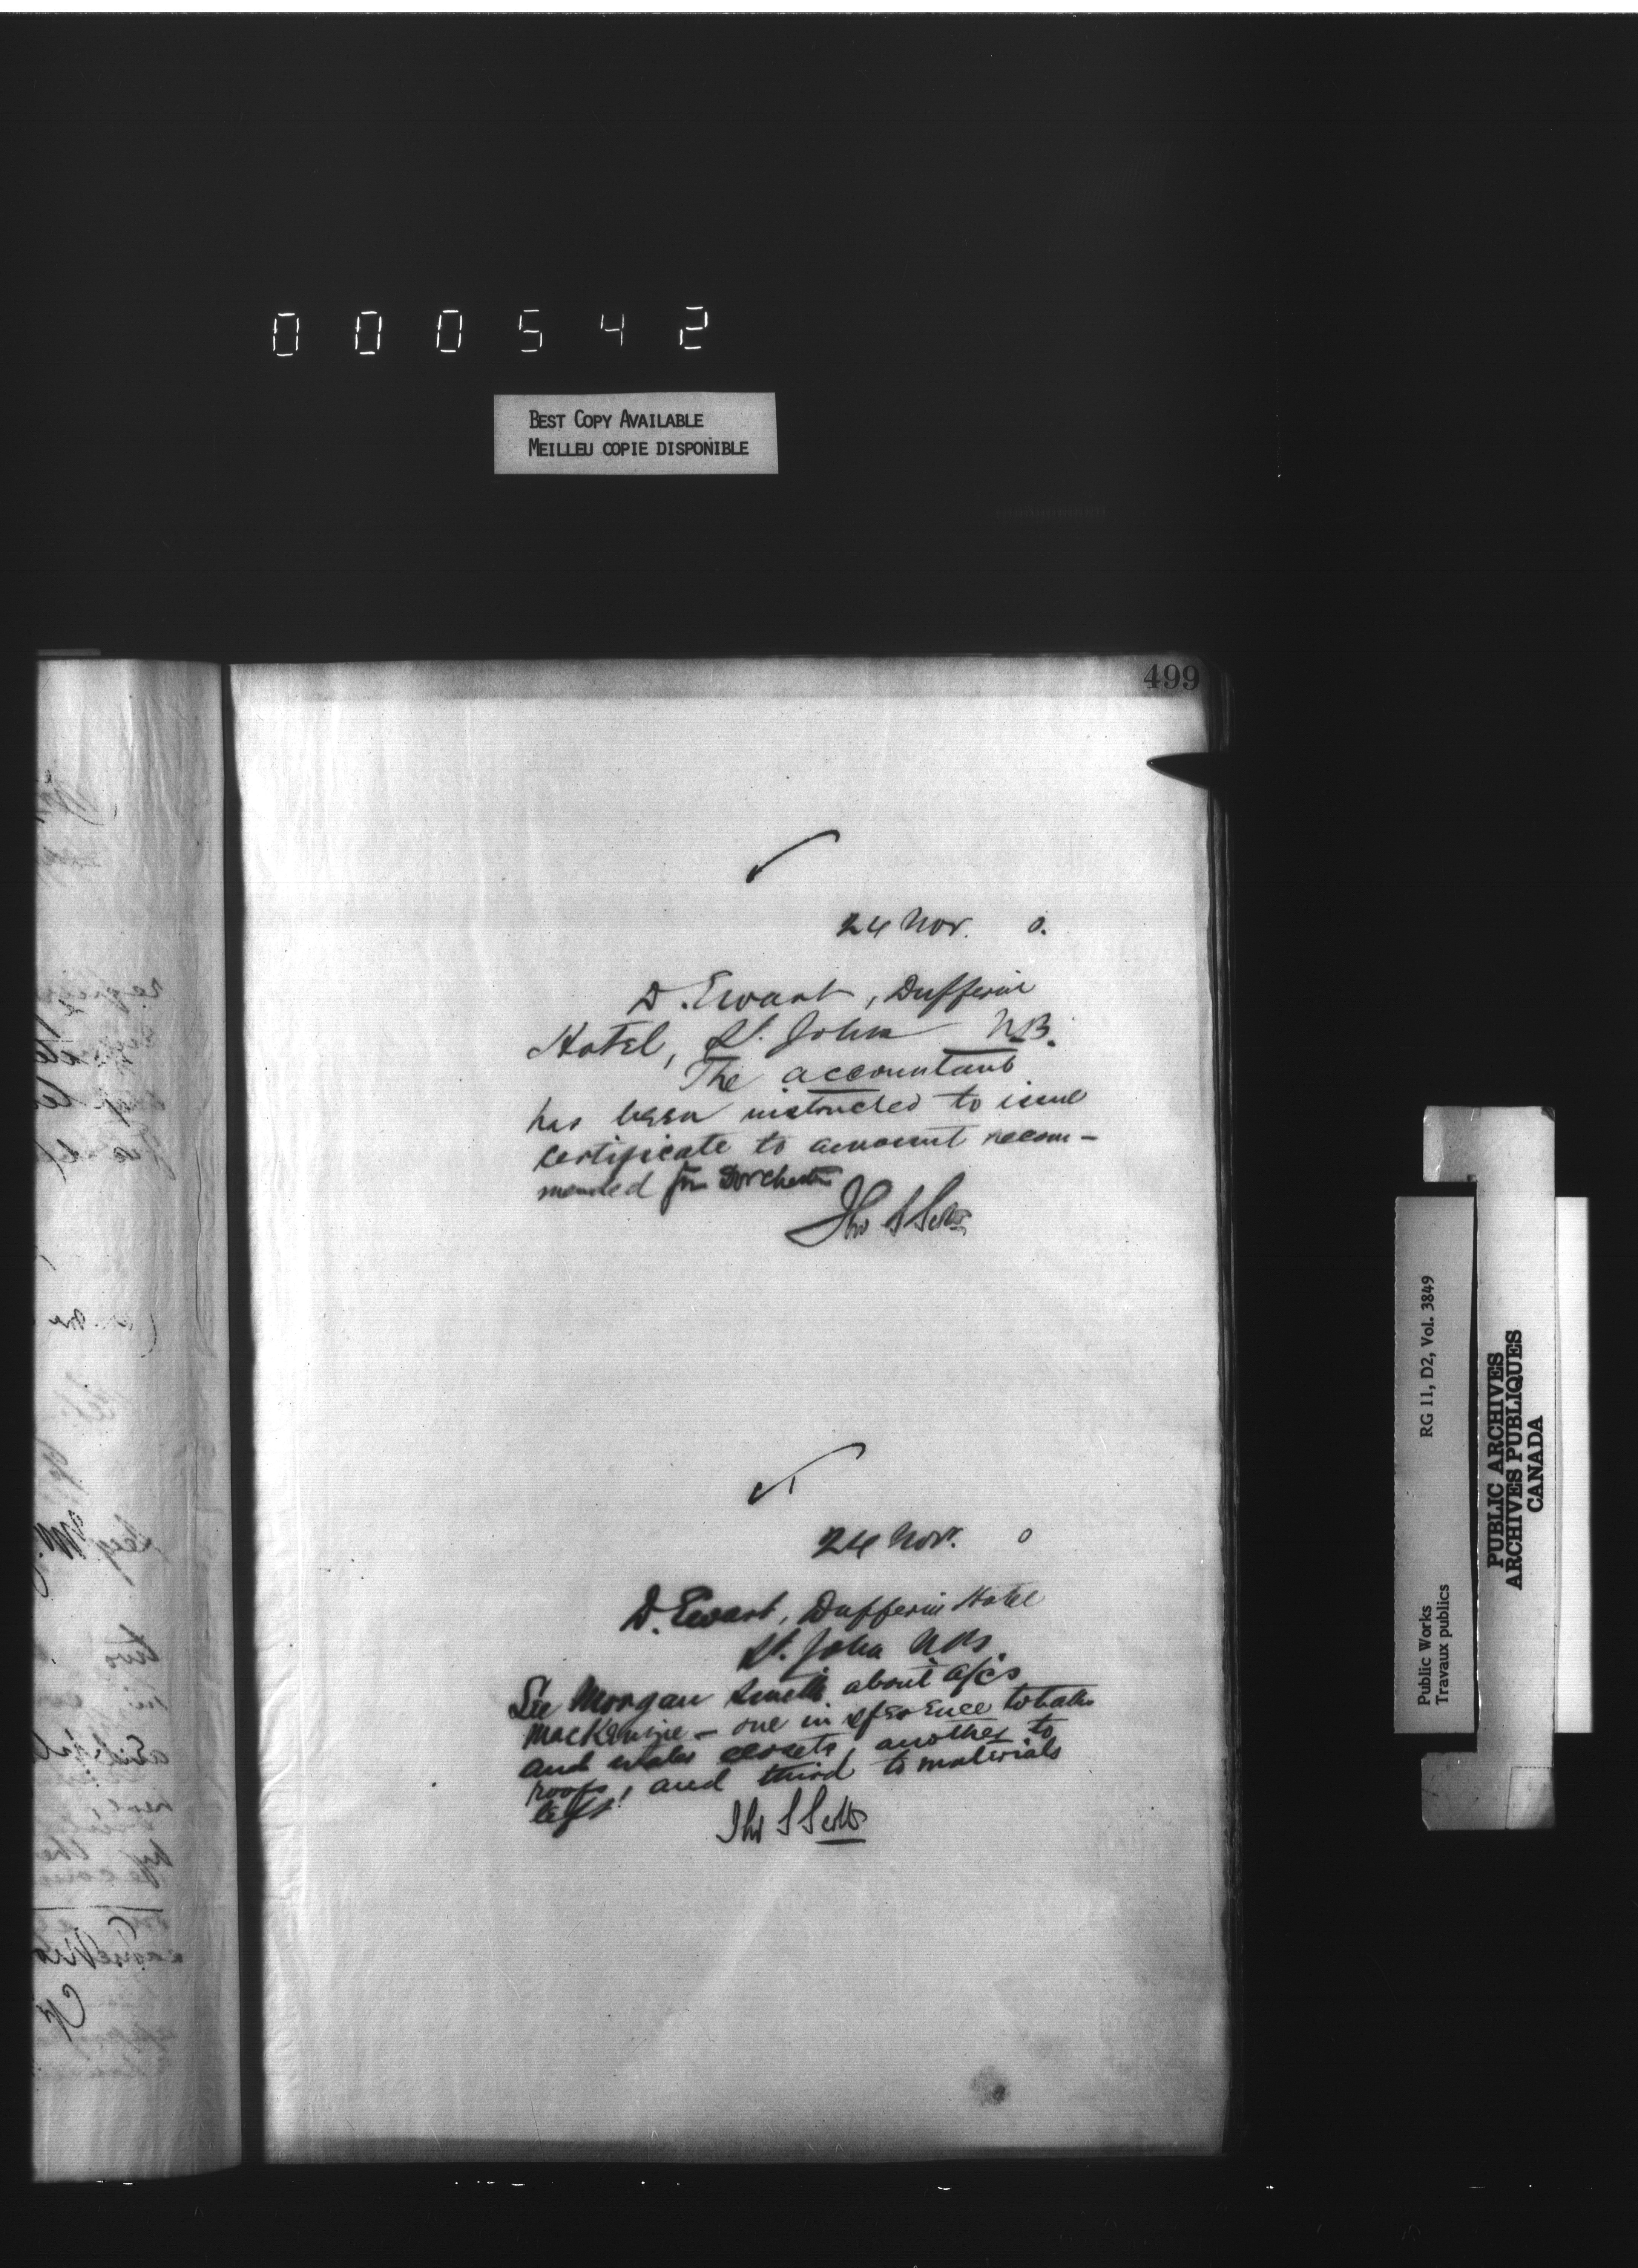 000542
BEST COPY AVAILABLE
MEILLEU COPIE DISPONIBLE
499
24 Nov. 0.
D. Ewart, Dufferin
Hotel, St. John N.B.
The accountant
has been instructed to issue
certificate to amount recom-
mended for Dorchester
Thos S Scott
24 Nov. 0
D. Ewart, Dufferin Hotel
St. John N.B.
See Morgan Smith about a/cs
MacKenzie - one in reference to baths
and water closets, another to
roofs, and third to materials
left.
Thos S Scott
Public Works
Travaux publics
RG 11, D2, Vol. 3849
PUBLIC ARCHIVES
ARCHIVES PUBLIQUES
CANADA